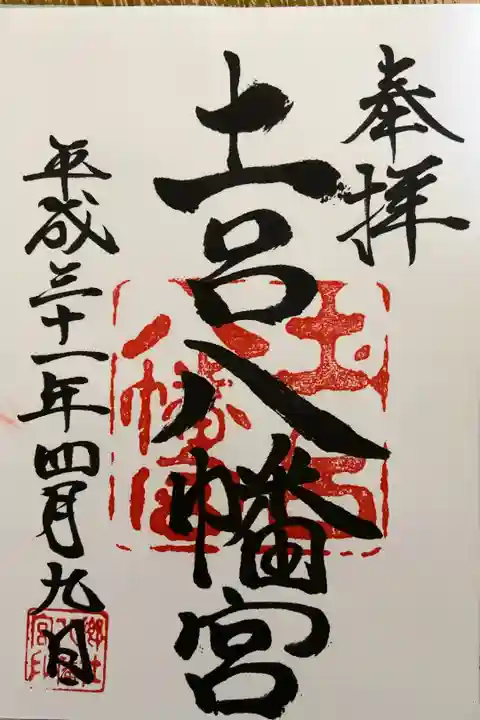 奉拝
土呂八幡宮
平成三十一年四月九日